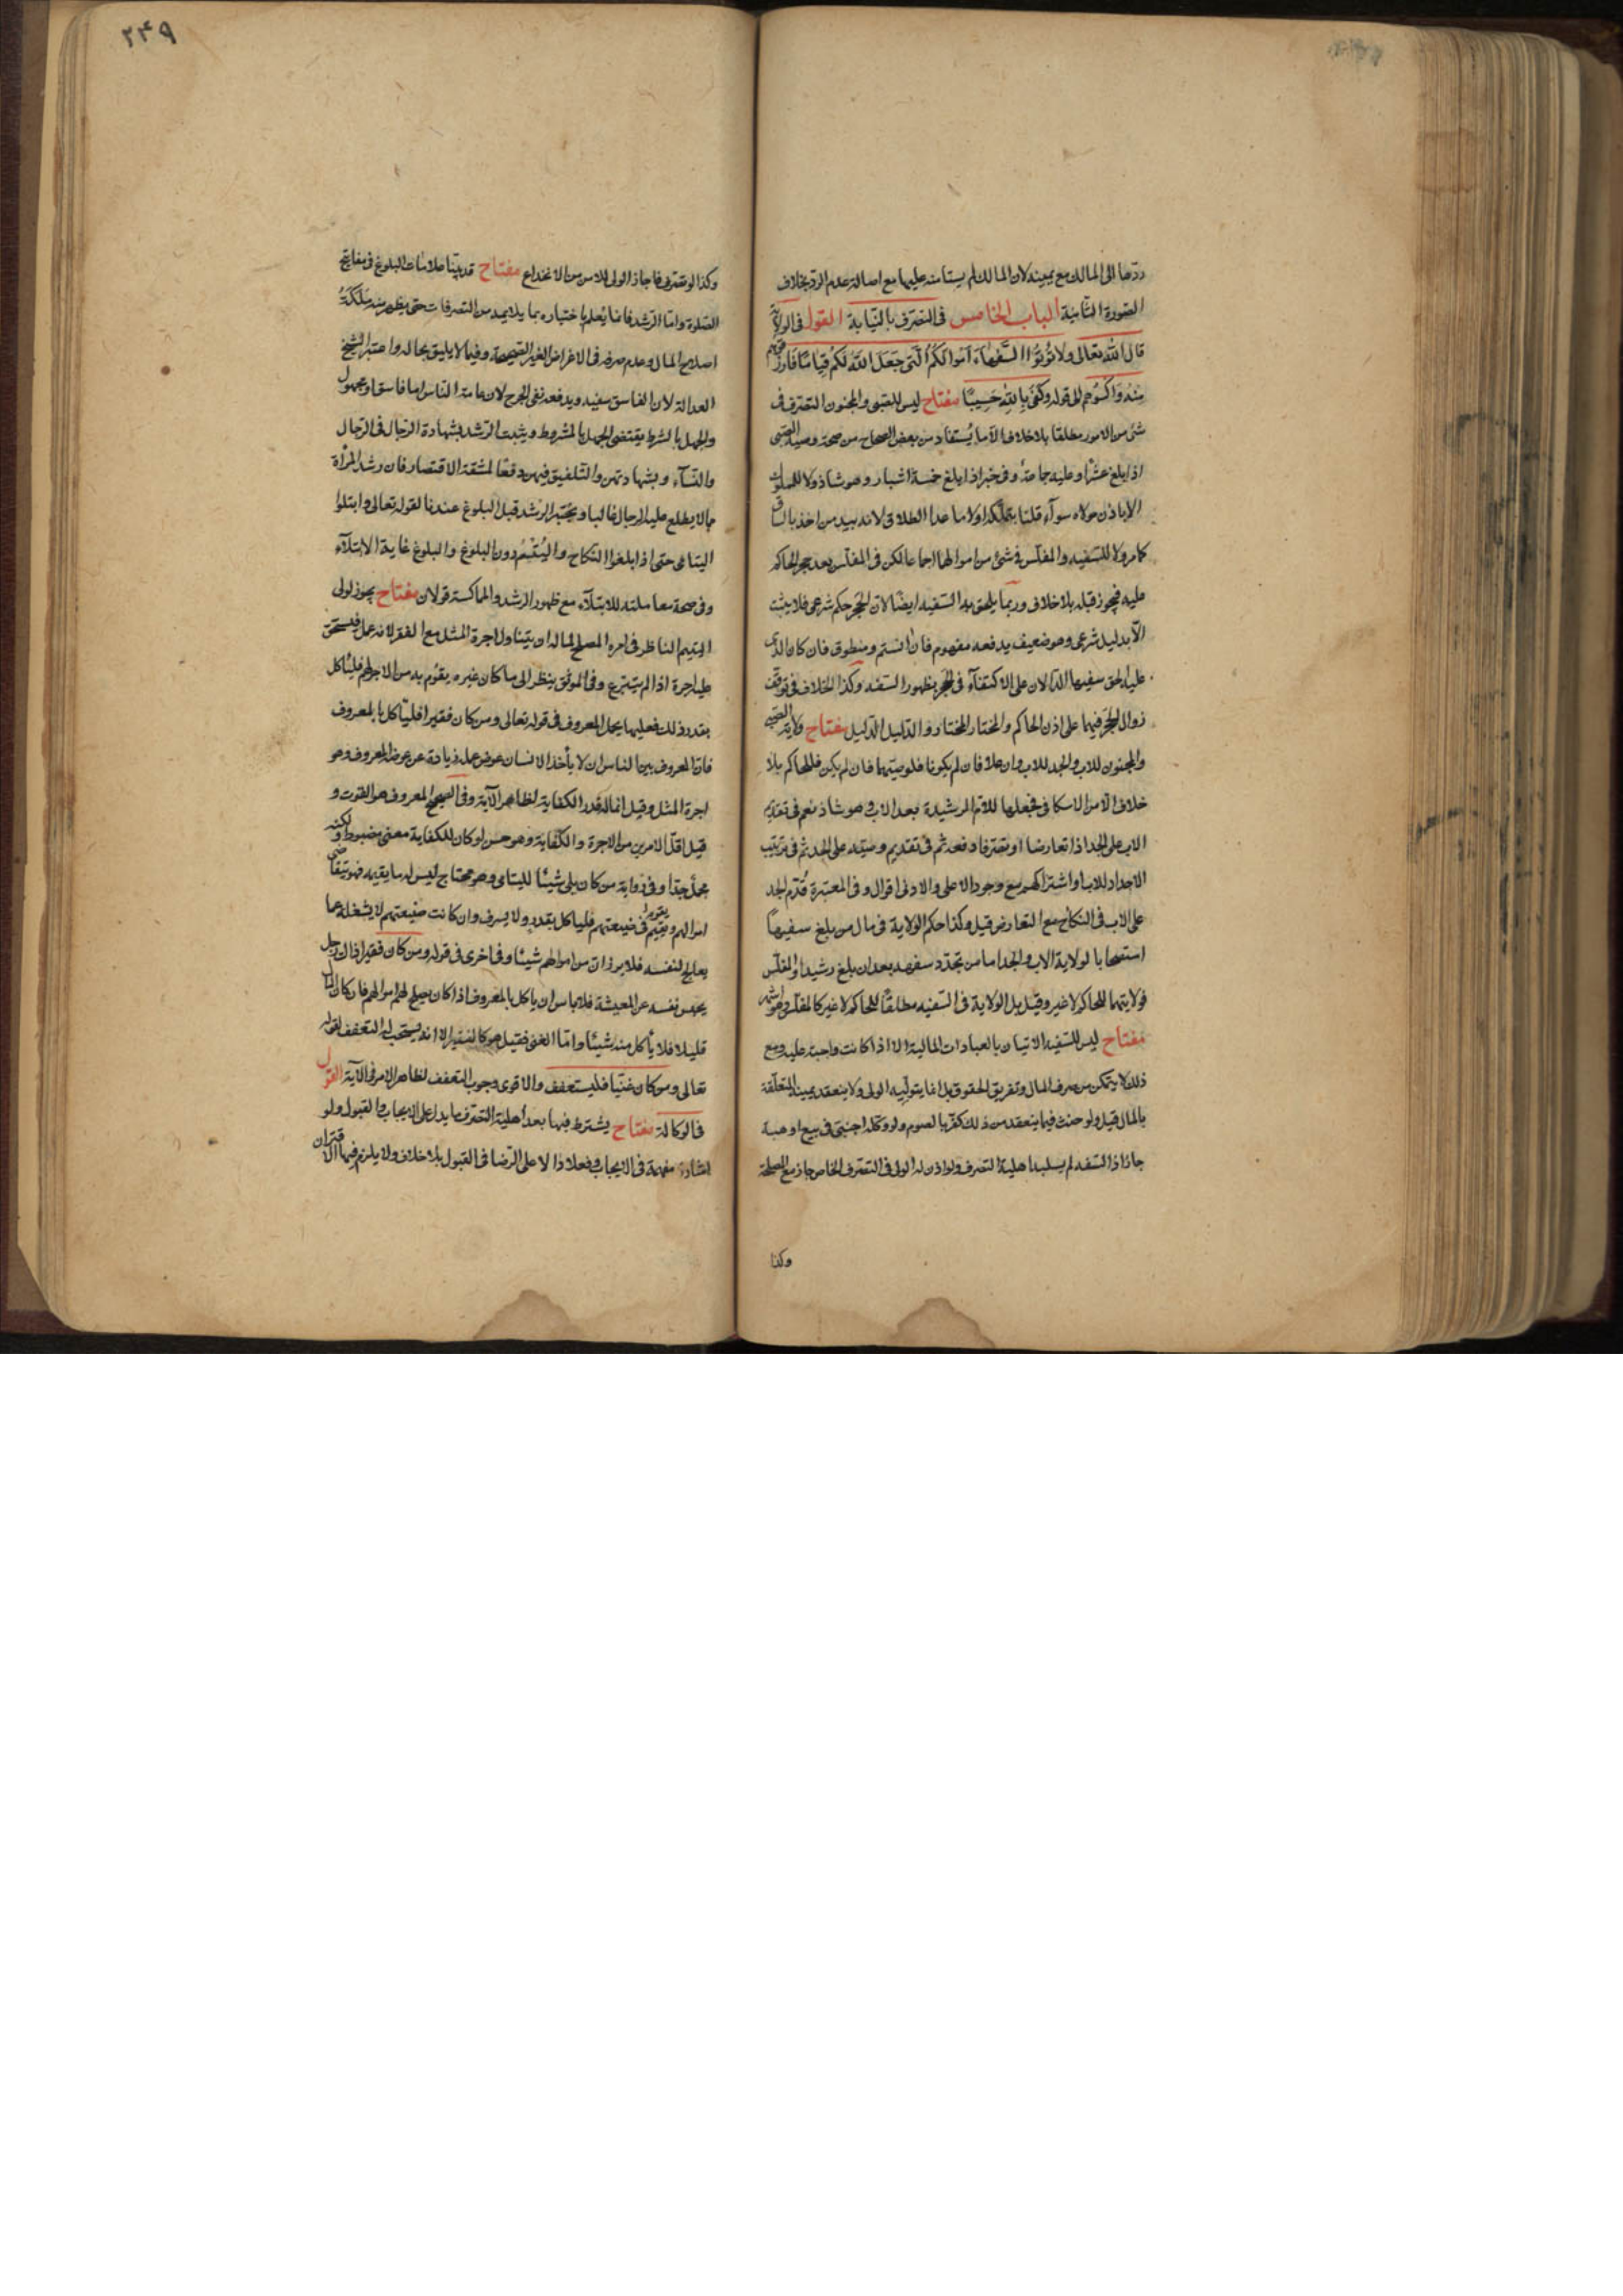 ردها الى المالك مع يمينه لان المالك لم يستامنه عليها مع اصالة عدم الرد بخلاف
الصورة الثانية الباب الخامس فى التصرف بالنيابة القول فى الولاية
قال الله تعالى ولا تؤتوا السفهاء اموالكم التى جعل الله لكم قياما فارزقوهم
واكسوهم الى قوله وكفى بالله حسيبا مفتاح ليس للصبى والمجنون التصرف فى
شئ من الامور مطلقا بلا خلاف الا ما يستفاد من بعض الصحاح من صحة وصية الصبى
اذا بلغ عشرا وعليه جماعة وفى خبر اذا بلغ خمسة اشبار وهو شاذ ولا للمملوك
الا باذن مولاه سوآء قلنا بتملكه او لا ما عدا الطلاق لانه بيد من اخذ بالساق
كما مر ولا للسفيه والمفلس فى شئ من اموالهما اجماعا لكن فى المفلس بعد حجر الحاكم
عليه فيجوز قبله بلا خلاف وربما يلحق به السفيه ايضا لان الحجر حكم شرعى فلا يثبت
الا بدليل شرعى وهو ضعيف يدفعه مفهوم فان انستم ومنطوق فان كان الذى
عليه الحق سفيها الدالان على الاكتفآء فى الحجر بظهور السفه وكذا الخلاف فى توقف
زوال الحجر فيهما على اذن الحاكم والمختار المختار والدليل الدليل مفتاح ولاية الصبى
والمجنون للاب والجد للاب وان علا فان لم يكونا فلوصيهما فان لم يكن فللحاكم بلا
خلاف الا من الاسكافى فجعلها للام الرشيدة بعد الاب وهو شاذ نعم فى تقديم
الاب على الجد اذا تعارضا او تصرفا دفعة ثم فى تقديم وصيه على الجد ثم فى ترتيب
الاجداد للاب او اشتراكهم مع وجود الاعلى والادنى اقوال وفى المعتبرة قدم الجد
على الاب فى النكاح مع التعارض قيل وكذا حكم الولاية فى مال من بلغ سفيها
استصحابا لولاية الاب والجد اما من تجدد سفهه بعد ان بلغ رشيدا والمفلس
فولايتهما للحاكم لا غير وقيل بل الولاية فى السفيه مطلقا للحاكم لا غير كالمفلس وهو اشهر
مفتاح ليس للسفيه الاتيان بالعبادات المالية الا اذا كانت واجبة عليه ومع
ذلك لا يتمكن من صرف المال وتفريق الحقوق بل انما يتولاه الولى ولا ينعقد يمينه المتعلقة
بالمال قيل ولو حنث فيما ينعقد من ذلك كفر بالصوم ولو وكله اجنبى فى بيع او هبة
جاز اذ السفه لم يسلبه اهلية التصرف ولو اذن له الولى فى التصرف الخاص جاز مع المصلحة
وكذا
٢٣٩
وكذا لو تصرف فاجاز الولى للامن من الانخداع مفتاح قد بينا علامات البلوغ فى مفاتيح
الصلوة واما الرشد فانما يعلم باختباره بما يلايمه من التصرفات حتى يظهر منه ملكة
اصلاح المال وعدم صرفه فى الاغراض الغير الصحيحة وفيما لا يليق بحاله واعتبر الشيخ
العدالة لان الفاسق سفيه ويدفعه نفى الحرج لان عامة الناس اما فاسق او مجهول
والجهل بالشرط يقتضى الجهل بالمشروط ويثبت الرشد بشهادة الرجال فى الرجال
والنسآء وبشهادتهن والتلفيق فيهن دفعا لمشقة الاقتصار فان رشد المرأة
مما لا يطلع عليه الرجال غالبا ويختبر الرشد قبل البلوغ عندنا لقوله تعالى وابتلوا
اليتامى حتى اذا بلغوا النكاح واليتم دون البلوغ والبلوغ غاية الابتلآء
وفى صحة معاملته للابتلآء مع ظهور الرشد والمماكسة قولان مفتاح يجوز لولى
اليتيم الناظر فى امره المصلح لماله ان يتناول اجرة المثل مع الفقر لانه عمل فيستحق
عليه اجرة اذا لم يتبرع وفى الموثق ينظر الى ما كان غيره يقوم به من الاجر لهم فليأكل
بقدر ذلك فعليها يحمل المعروف فى قوله تعالى ومن كان فقيرا فليأكل بالمعروف
فان المعروف بين الناس ان لا يأخذ الانسان عوض عمله زيادة عن عوض المعروف وهو
اجرة المثل وقيل انما له قدر الكفاية لظاهر الآية وفى الصحيح المعروف هو القوت و
قيل اقل الامرين من الاجرة والكفاية وهو حسن لو كان للكفاية معنى مضبوط ولكنه
مجمل جدا وفى رواية من كان يلى شيئا لليتامى وهو محتاج ليس له ما يقيمه فهو يتقاضى
اموالهم ويقوم فى ضيعتهم فلياكل بقدر ولا يسرف وان كانت ضيعتهم لا يشغله عما
يعالج لنفسه فلا يرزان من اموالهم شيئا وفى اخرى فى قوله ومن كان فقيرا ذاك رجل
يحبس نفسه عن المعيشة فلا باس ان ياكل بالمعروف اذا كان يصلح لهم اموالهم فان كان المال
قليلا فلا يأكل منه شيئا واما الغنى فقيل هو كالفقير الا انه يستحب له التعفف لقوله
تعالى ومن كان غنيا فليستعفف والاقوى وجوب التعفف لظاهر الامر فى الآية القول
فى الوكالة مفتاح يشترط فيها بعد اهلية التصرف ما يدل على الايجاب والقبول ولو
اشارة مفهمة فى الايجاب وفعلا دالا على الرضا فى القبول بلا خلاف ولا يلزم فيها الاقتران